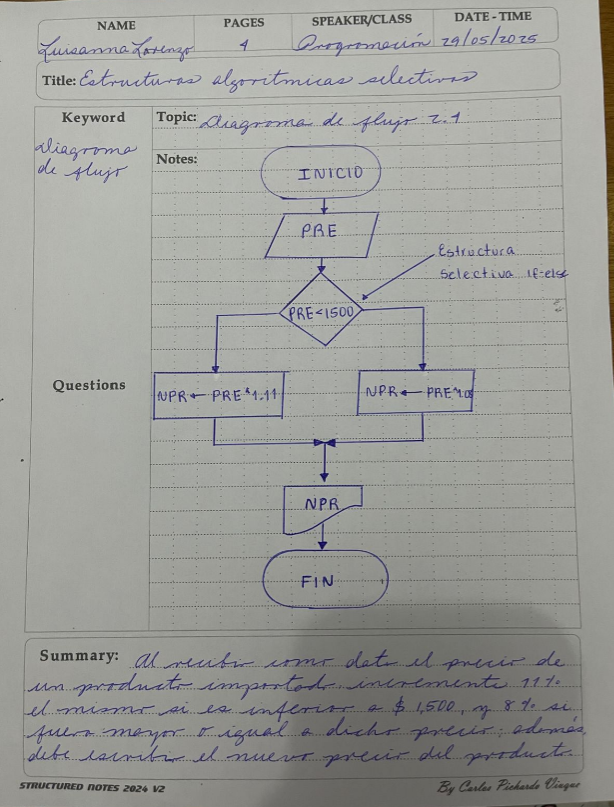 NAME PAGES SPEAKER/CLASS DATE - TIME
Luisanna Lorenzo 4 Programación 29/05/2025
Title: Estructuras algorítmicas selectivas
Keyword
Topic: Diagrama de flujo 2.4
Diagrama
de flujo
Notes:
INICIO
PRE
Estructura
Selectiva if-else
PRE<1500
Questions
NPR ← PRE*1.11
NPR ← PRE*1.08
NPR
FIN
Summary: Al recibir como dato el precio de
un producto importado, incremente 11%
el mismo si es inferior a $ 1,500, y 8% si
fuera mayor o igual a dicho precio; además,
debe escribir el nuevo precio del producto.
STRUCTURED NOTES 2024 V2
By Carlos Pichardo Viuque